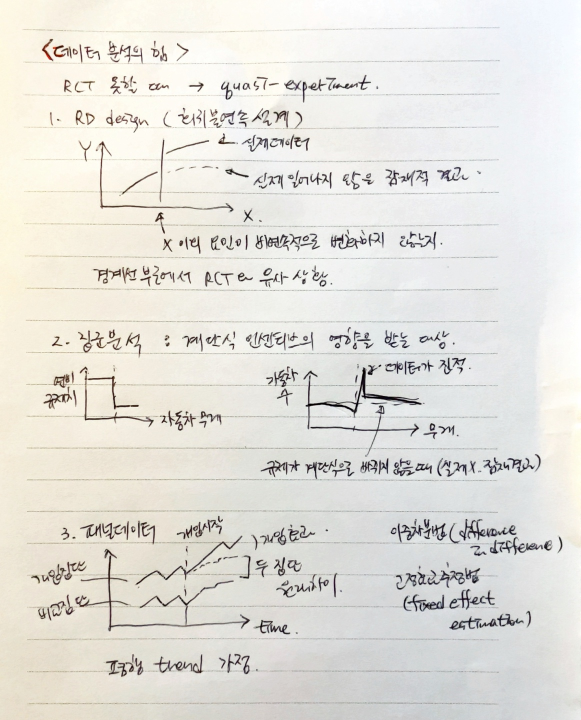 <데이터 분석의 힘>
RCT 못할 때 → quasi-experiment.
1. RD design (회귀불연속 설계)
Y
실제데이터
실제 일어나지 않은 잠재적 결과.
X.
X 이외 요인이 비연속적으로 변화하지 않는지.
경계선 부근에서 RCT와 유사 상황.
2. 집군분석 : 계단식 인센티브의 영향을 받는 대상.
연비
규제치
자동차 무게
자동차
수
데이터가 집적.
무게.
규제가 계단식으로 바뀌지 않을 때 (실제X. 잠재결과)
3. 패널데이터
개입시작
개입집단
비교집단
개입효과.
두 집단
원래차이.
time.
이중차분법 (difference
in difference)
고정효과추정법
(fixed effect
estimation)
평행 trend 가정.